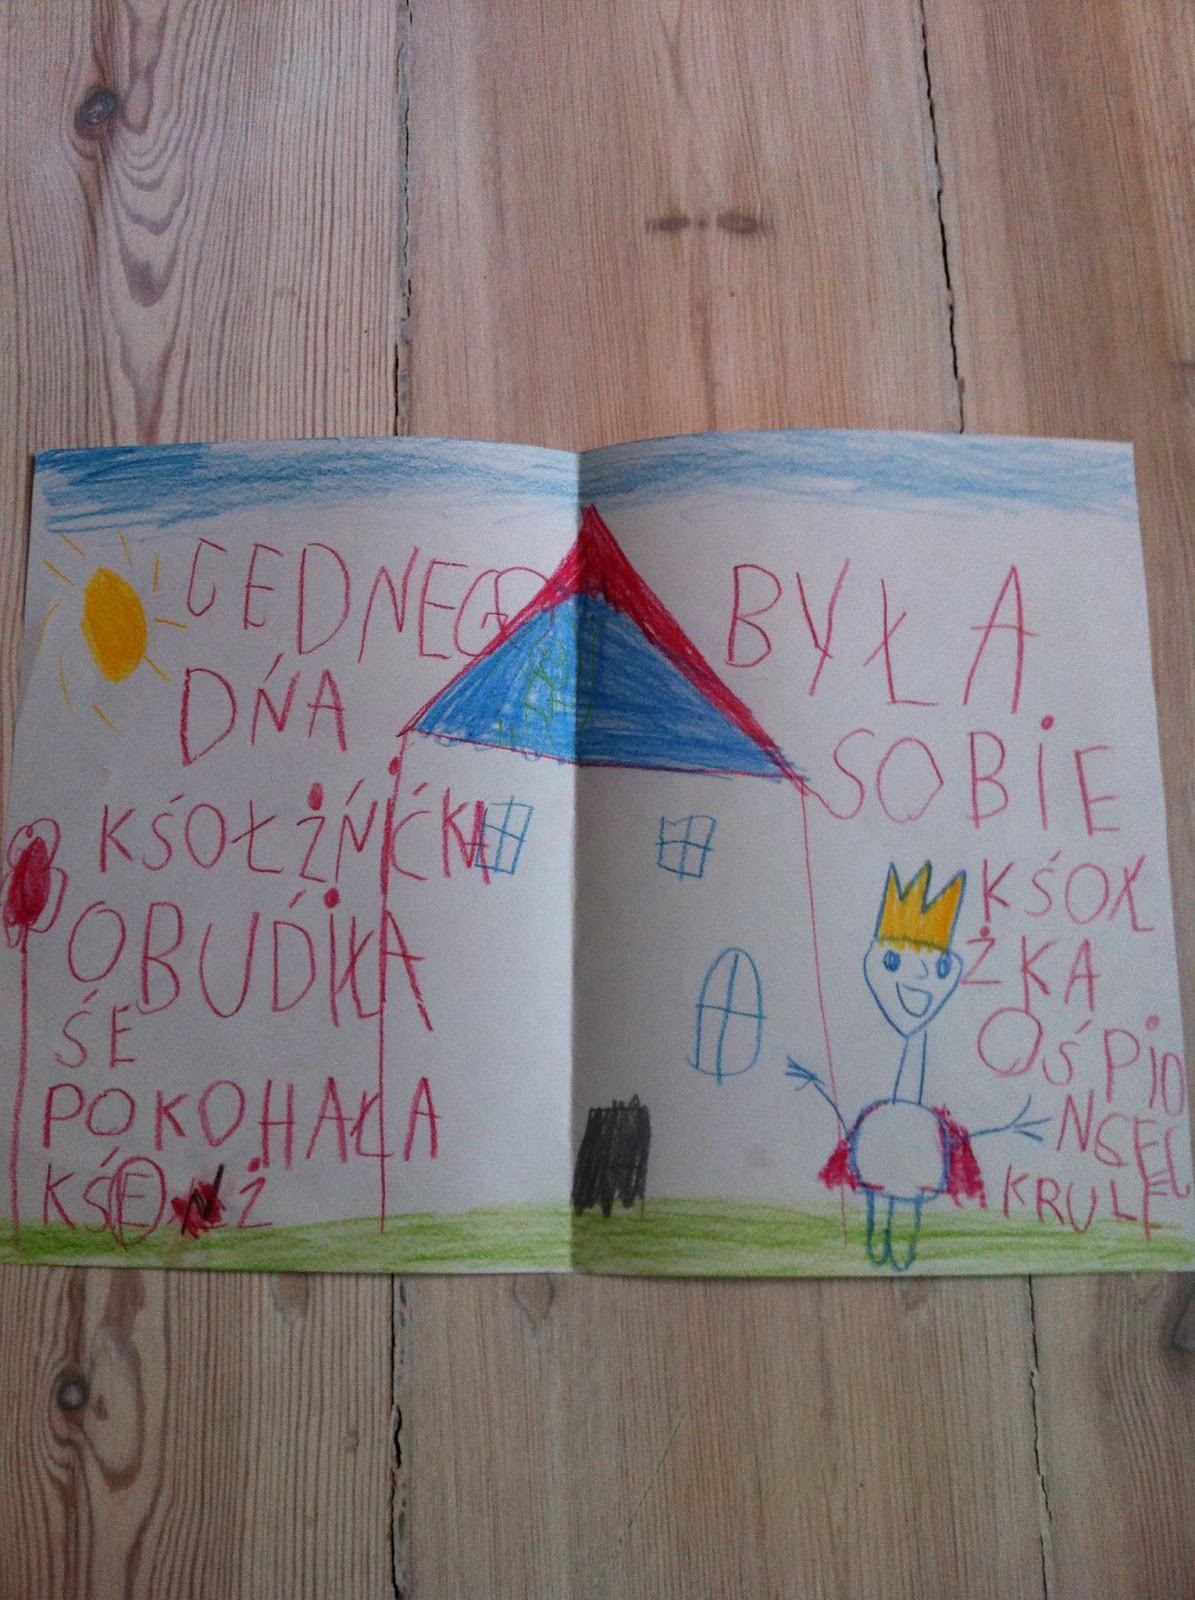 JEDNEGO
DŃA
KŚOŁŻŃIĆKA
OBUD́IŁA
ŚE
POKOHAŁA
KŚENŻ
BYŁA
SOBIE
KŚOŁ
ŻKA
OŚPIO
NCEJ
KRULE